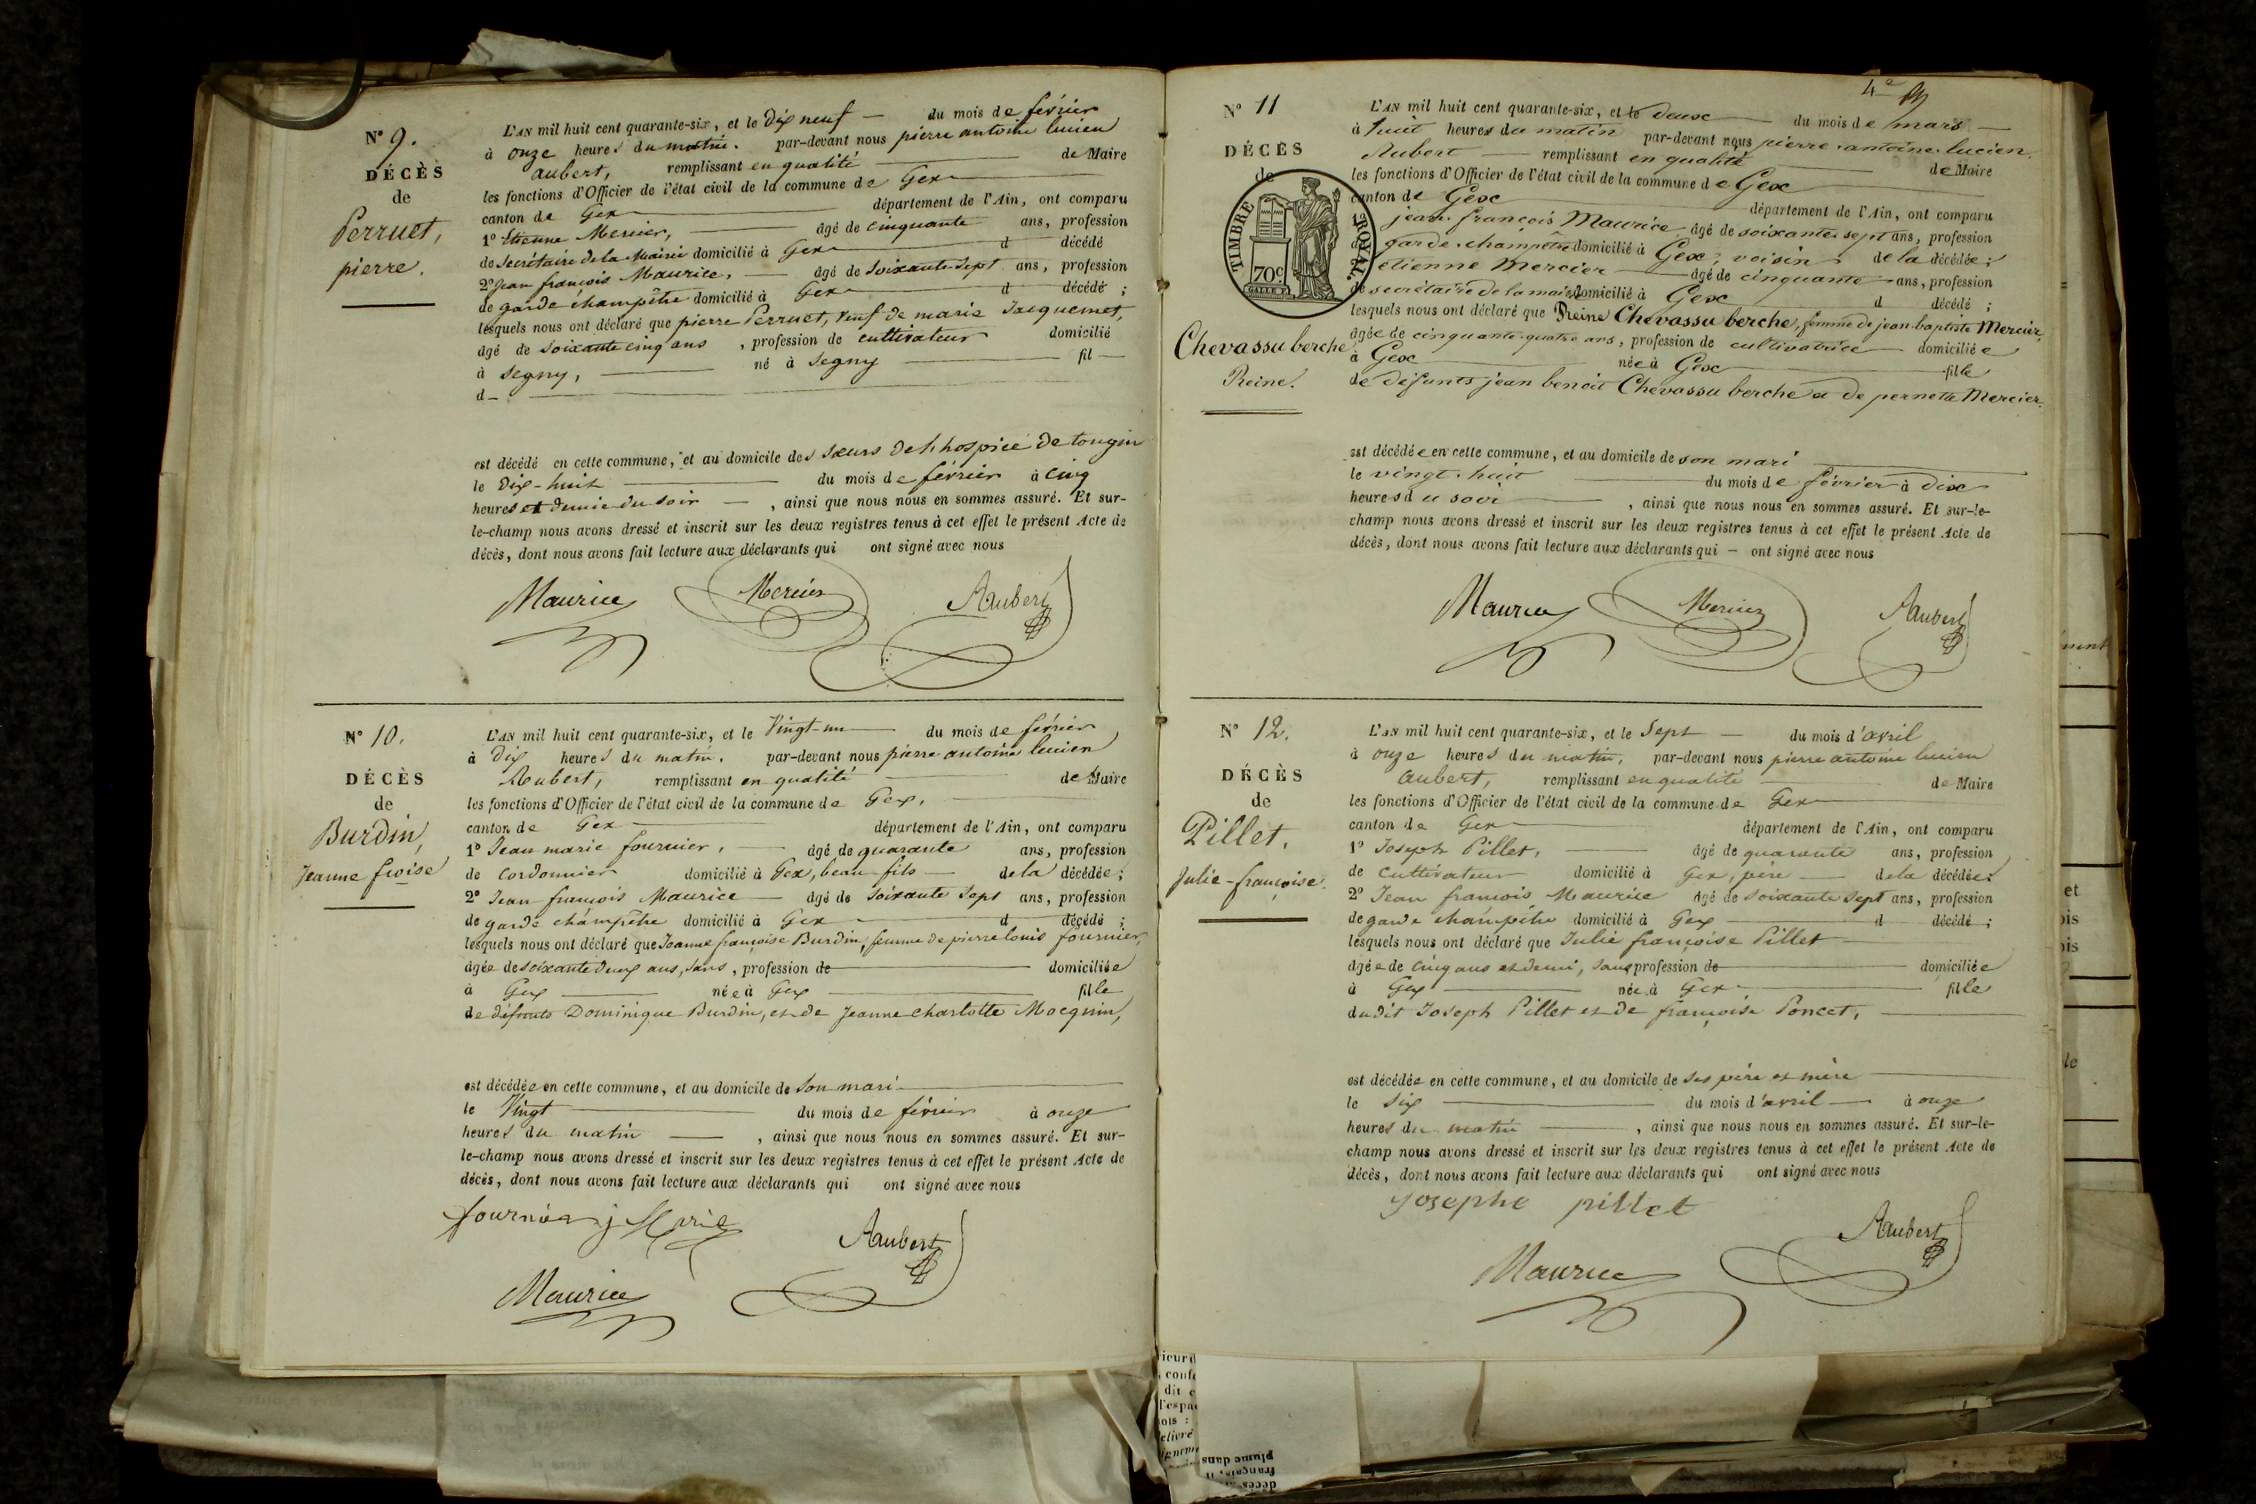 N° 9.
DÉCÈS
de
Perruet,
pierre.
L'AN mil huit cent quarante-six, et le dix neuf — du mois de février
à onze heures du matin. par-devant nous pierre antoine lucien
aubert, remplissant en qualité de Maire
les fonctions d'Officier de l'état civil de la commune de Gex
canton de Gex département de l'Ain, ont comparu
1° Etienne Mercier, âgé de cinquante ans, profession
de Secrétaire de la Mairie domicilié à Gex d décédé
2° Jean françois Maurice, — âgé de soixante sept ans, profession
de garde champêtre domicilié à Gex d décédé ;
lesquels nous ont déclaré que pierre Perruet, veuf de marie Jacquemet,
âgé de soixante cinq ans , profession de cultivateur domicilié
à Segny, né à Segny fil
d
est décédé en cette commune, et au domicile des sœurs de l'hospice de tougin
le dix-huit du mois de février à cinq
heures et demie du soir — , ainsi que nous nous en sommes assuré. Et sur-
le-champ nous avons dressé et inscrit sur les deux registres tenus à cet effet le présent Acte de
décès, dont nous avons fait lecture aux déclarants qui ont signé avec nous
Maurice Mercier Aubert
N° 10.
DÉCÈS
de
Burdin,
Jeanne froise
L'AN mil huit cent quarante-six, et le Vingt-un du mois de février
à dix heures du matin. par-devant nous pierre antoine lucien
Aubert, remplissant en qualité de Maire
les fonctions d'Officier de l'état civil de la commune de Gex.
canton de Gex département de l'Ain, ont comparu
1° Jean marie fournier, — âgé de quarante ans, profession
de cordonnier domicilié à Gex, beau-fils — de la décédée ;
2° Jean françois Maurice — âgé de soixante sept ans, profession
de garde champêtre domicilié à Gex d décédé ;
lesquels nous ont déclaré que Jeanne françoise Burdin, femme de pierre louis fournier,
âgée de soixante deux ans, sans , profession de domiciliée
à Gex née à Gex fille
de défunts Dominique Burdin, et de Jeanne charlotte Mocquin,
est décédée en cette commune, et au domicile de son mari
le Vingt du mois de février à onze
heures du matin — , ainsi que nous nous en sommes assuré. Et sur-
le-champ nous avons dressé et inscrit sur les deux registres tenus à cet effet le présent Acte de
décès, dont nous avons fait lecture aux déclarants qui ont signé avec nous
fournier j Marie Aubert
Maurice
4e
N° 11
DÉCÈS
de
TIMBRE ROYAL
70c
Chevassu berche
Reine.
L'AN mil huit cent quarante-six, et le deux du mois de mars
à huit heures du matin par-devant nous pierre antoine lucien
Aubert — remplissant en qualité de Maire
les fonctions d'Officier de l'état civil de la commune de Gex
canton de Gex département de l'Ain, ont comparu
jean françois Maurice âgé de soixante sept ans, profession
de garde champêtre domicilié à Gex, voisin de la décédée ;
etienne Mercier âgé de cinquante ans, profession
de secrétaire de la mairie domicilié à Gex d décédé ;
lesquels nous ont déclaré que Reine Chevassu berche, femme de jean baptiste Mercier,
âgée de cinquante quatre ans, profession de cultivatrice domiciliée
à Gex née à Gex fille
de défunts jean benoit Chevassu berche et de pernette Mercier.
est décédée en cette commune, et au domicile de son mari
le vingt huit du mois de février à dix
heures du soir , ainsi que nous nous en sommes assuré. Et sur-le-
champ nous avons dressé et inscrit sur les deux registres tenus à cet effet le présent Acte de
décès, dont nous avons fait lecture aux déclarants qui — ont signé avec nous
Maurice Mercier Aubert
N° 12.
DÉCÈS
de
Pillet,
Julie-françoise.
L'AN mil huit cent quarante-six, et le Sept — du mois d'avril
à onze heures du matin, par-devant nous pierre antoine lucien
aubert, remplissant en qualité de Maire
les fonctions d'Officier de l'état civil de la commune de Gex
canton de Gex département de l'Ain, ont comparu
1° Joseph Pillet, âgé de quarante ans, profession
de cultivateur domicilié à Gex, père — de la décédée ;
2° Jean françois Maurice âgé de soixante sept ans, profession
de garde champêtre domicilié à Gex d décédé ;
lesquels nous ont déclaré que Julie françoise Pillet
âgée de cinq ans et demi, sans profession de domiciliée
à Gex née à Gex fille
dudit Joseph Pillet et de françoise Poncet,
est décédée en cette commune, et au domicile de ses père et mère
le six du mois d'avril — à onze
heures du matin , ainsi que nous nous en sommes assuré. Et sur-le-
champ nous avons dressé et inscrit sur les deux registres tenus à cet effet le présent Acte de
décès, dont nous avons fait lecture aux déclarants qui ont signé avec nous
Josephe pillet Aubert
Maurice